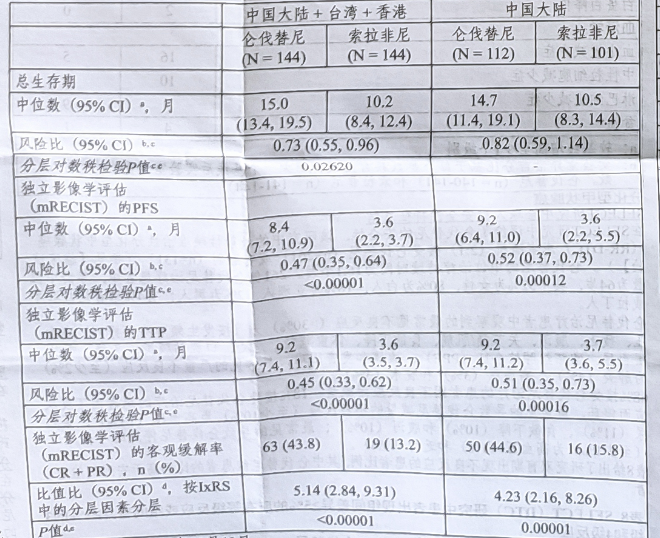 中国大陆＋台湾＋香港 中国大陆
仑伐替尼 索拉非尼 仑伐替尼 索拉非尼
(N = 144) (N = 144) (N = 112) (N = 101)
总生存期
中位数（95% CI）a，月 15.0 10.2 14.7 10.5
(13.4, 19.5) (8.4, 12.4) (11.4, 19.1) (8.3, 14.4)
风险比（95% CI）b,c 0.73 (0.55, 0.96) 0.82 (0.59, 1.14)
分层对数秩检验P值c,e 0.02620 -
独立影像学评估
（mRECIST）的PFS
中位数（95% CI）a，月 8.4 3.6 9.2 3.6
(7.2, 10.9) (2.2, 3.7) (6.4, 11.0) (2.2, 5.5)
风险比（95% CI）b,c 0.47 (0.35, 0.64) 0.52 (0.37, 0.73)
分层对数秩检验P值c,e <0.00001 0.00012
独立影像学评估
（mRECIST）的TTP
中位数（95% CI）a，月 9.2 3.6 9.2 3.7
(7.4, 11.1) (3.5, 3.7) (7.4, 11.2) (3.6, 5.5)
风险比（95% CI）b,c 0.45 (0.33, 0.62) 0.51 (0.35, 0.73)
分层对数秩检验P值c,e <0.00001 0.00016
独立影像学评估
（mRECIST）的客观缓解率
（CR + PR），n（%） 63 (43.8) 19 (13.2) 50 (44.6) 16 (15.8)
比值比（95% CI）d，按IxRS
中的分层因素分层 5.14 (2.84, 9.31) 4.23 (2.16, 8.26)
P值d,e <0.00001 0.00001